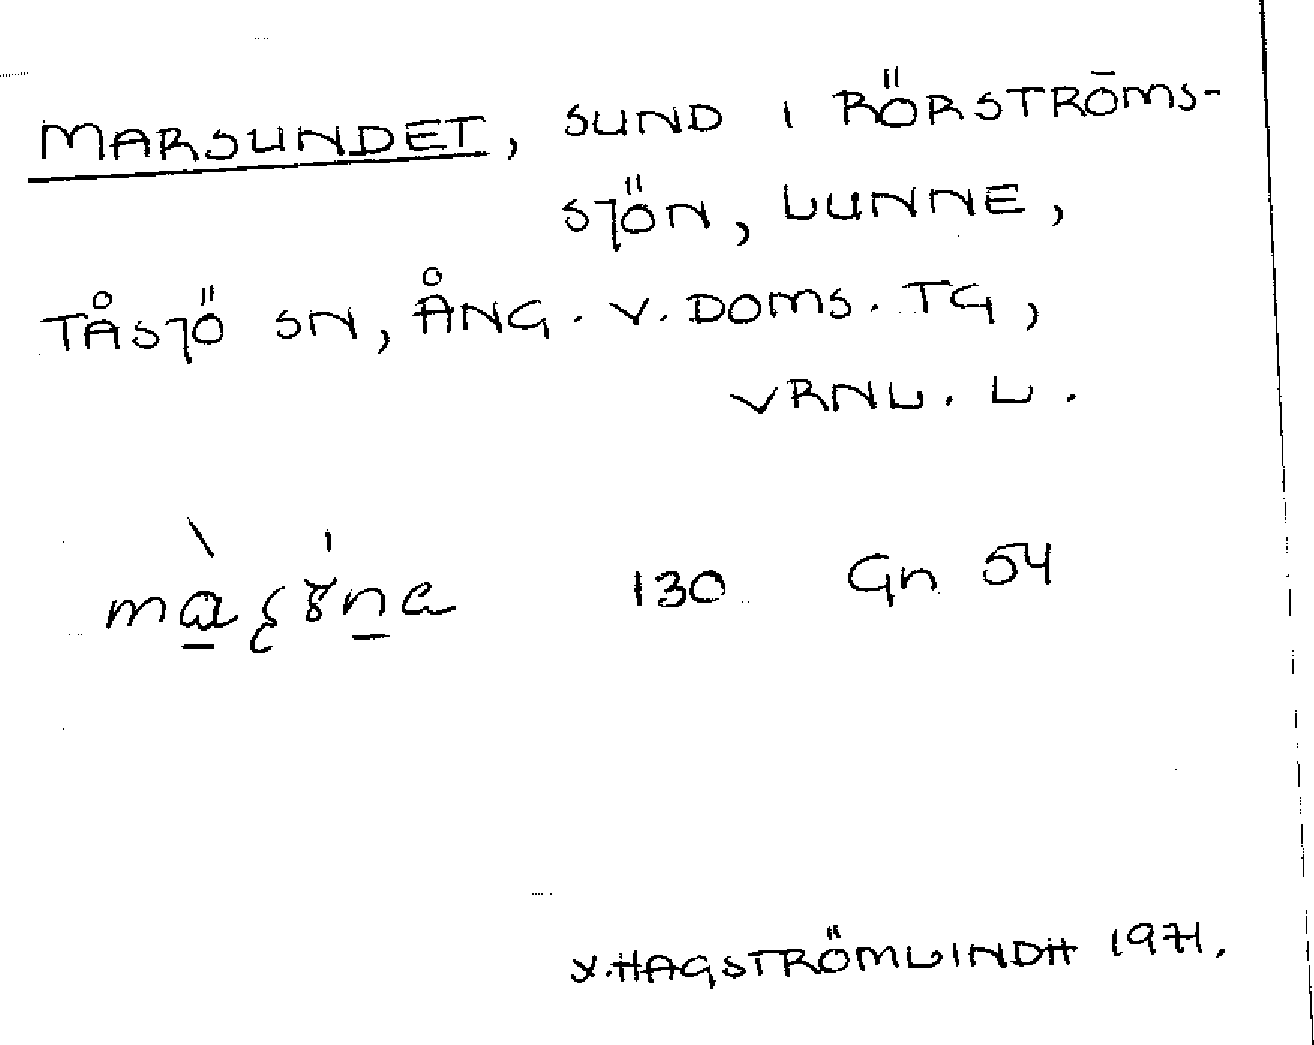 MARSUNDET, SUND I RÖRSTRÖMS-
SJÖN, LUNNE,
TÅSJÖ SN, ÅNG. V. DOMS. TG,
VRNL. L.
130 Gn 54
Y. HAGSTRÖMLINDH 1971.